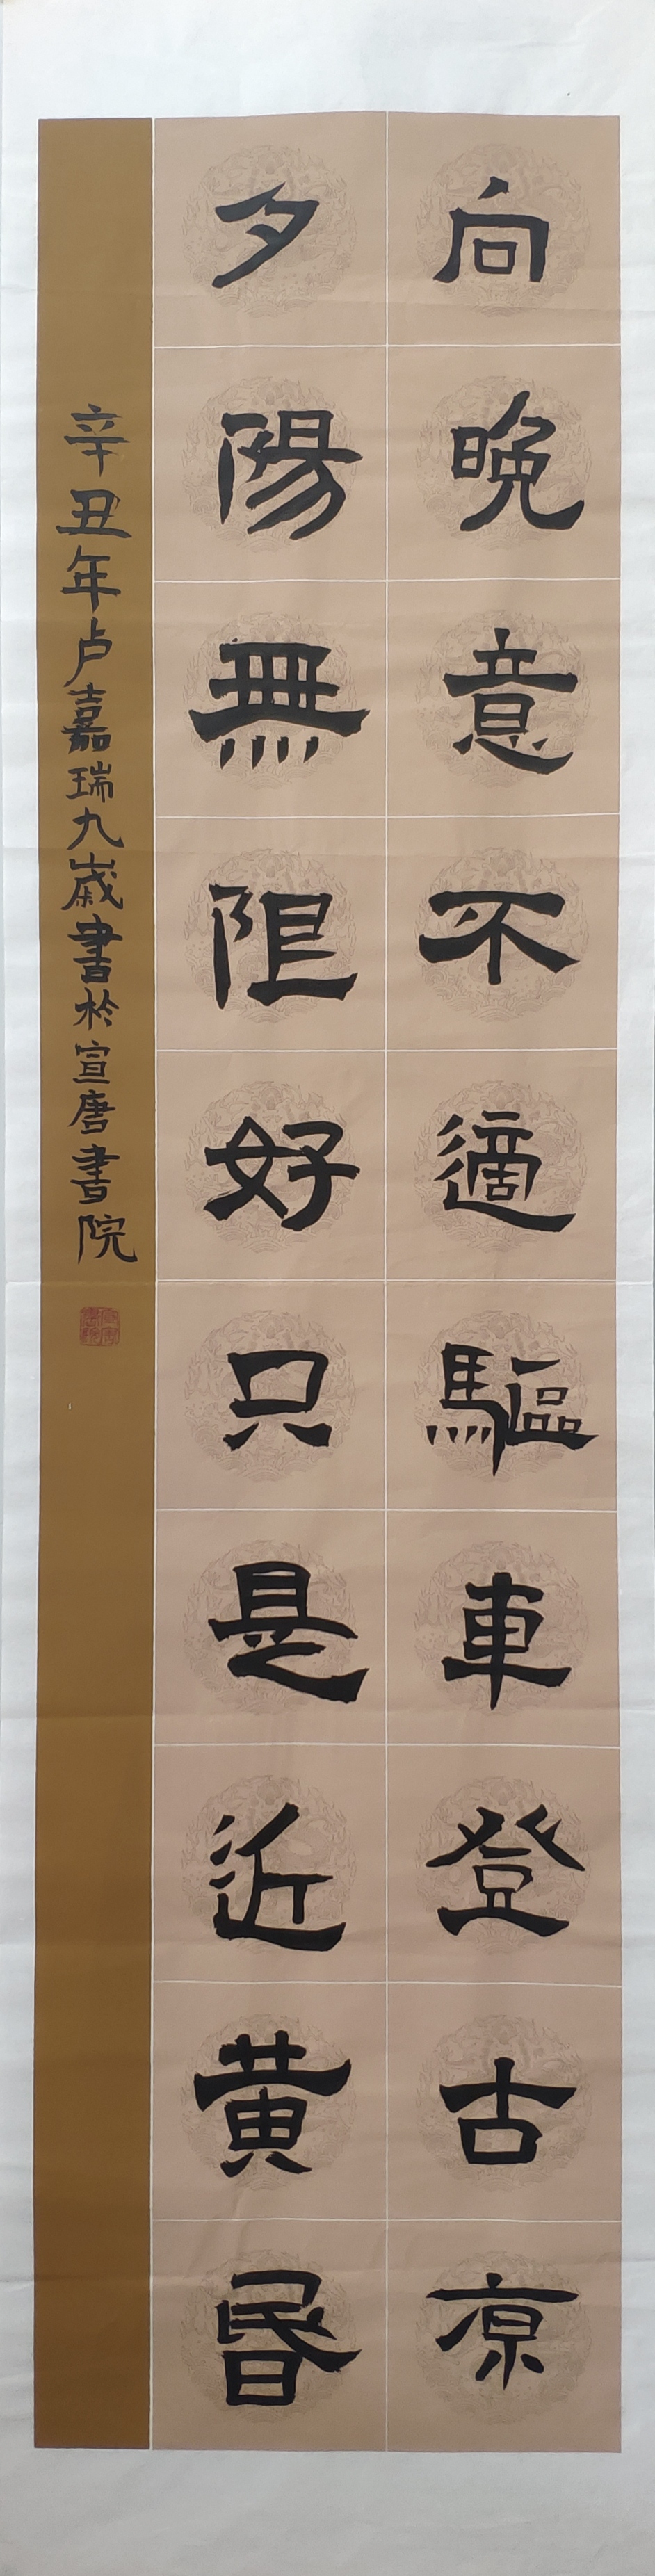 向晚意不適驅車登古原
夕陽無阻好只是近黄昬
辛丑年卢嘉瑞九歲書於宣唐書院